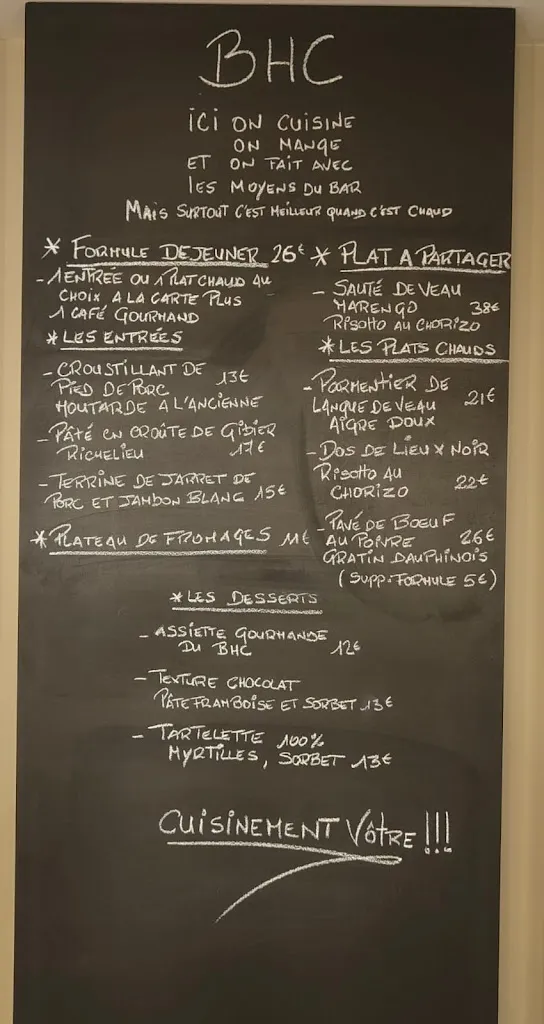 BHC
ICI ON CUISINE
ON MANGE
ET ON FAIT AVEC
LES MOYENS DU BAR
MAIS SURTOUT C'EST MEILLEUR QUAND C'EST CHAUD
* FORMULE DEJEUNER 26€
- 1 ENTRÉE OU 1 PLAT CHAUD AU
CHOIX A LA CARTE PLUS
1 CAFÉ GOURMAND
* LES ENTRÉES
- CROUSTILLANT DE
PIED DE PORC 13€
MOUTARDE A L'ANCIENNE
- PÂTÉ EN CROÛTE DE GIBIER
RICHELIEU 17€
- TERRINE DE JARRET DE
PORC ET JAMBON BLANC 15€
* PLATEAU DE FROMAGES 11€
* PLAT A PARTAGER
- SAUTÉ DE VEAU
MARENGO 38€
RISOTTO AU CHORIZO
* LES PLATS CHAUDS
- PARMENTIER DE
LANGUE DE VEAU 21€
AIGRE DOUX
- DOS DE LIEUX NOIR
RISOTTO AU
CHORIZO 22€
- PAVÉ DE BOEUF
AU POIVRE 26€
GRATIN DAUPHINOIS
(SUPP. FORMULE 5€)
* LES DESSERTS
- ASSIETTE GOURMANDE
DU BHC 12€
- TEXTURE CHOCOLAT
PÂTE FRAMBOISE ET SORBET 13€
- TARTELETTE 100%
MYRTILLES, SORBET 13€
CUISINEMENT VÔTRE !!!